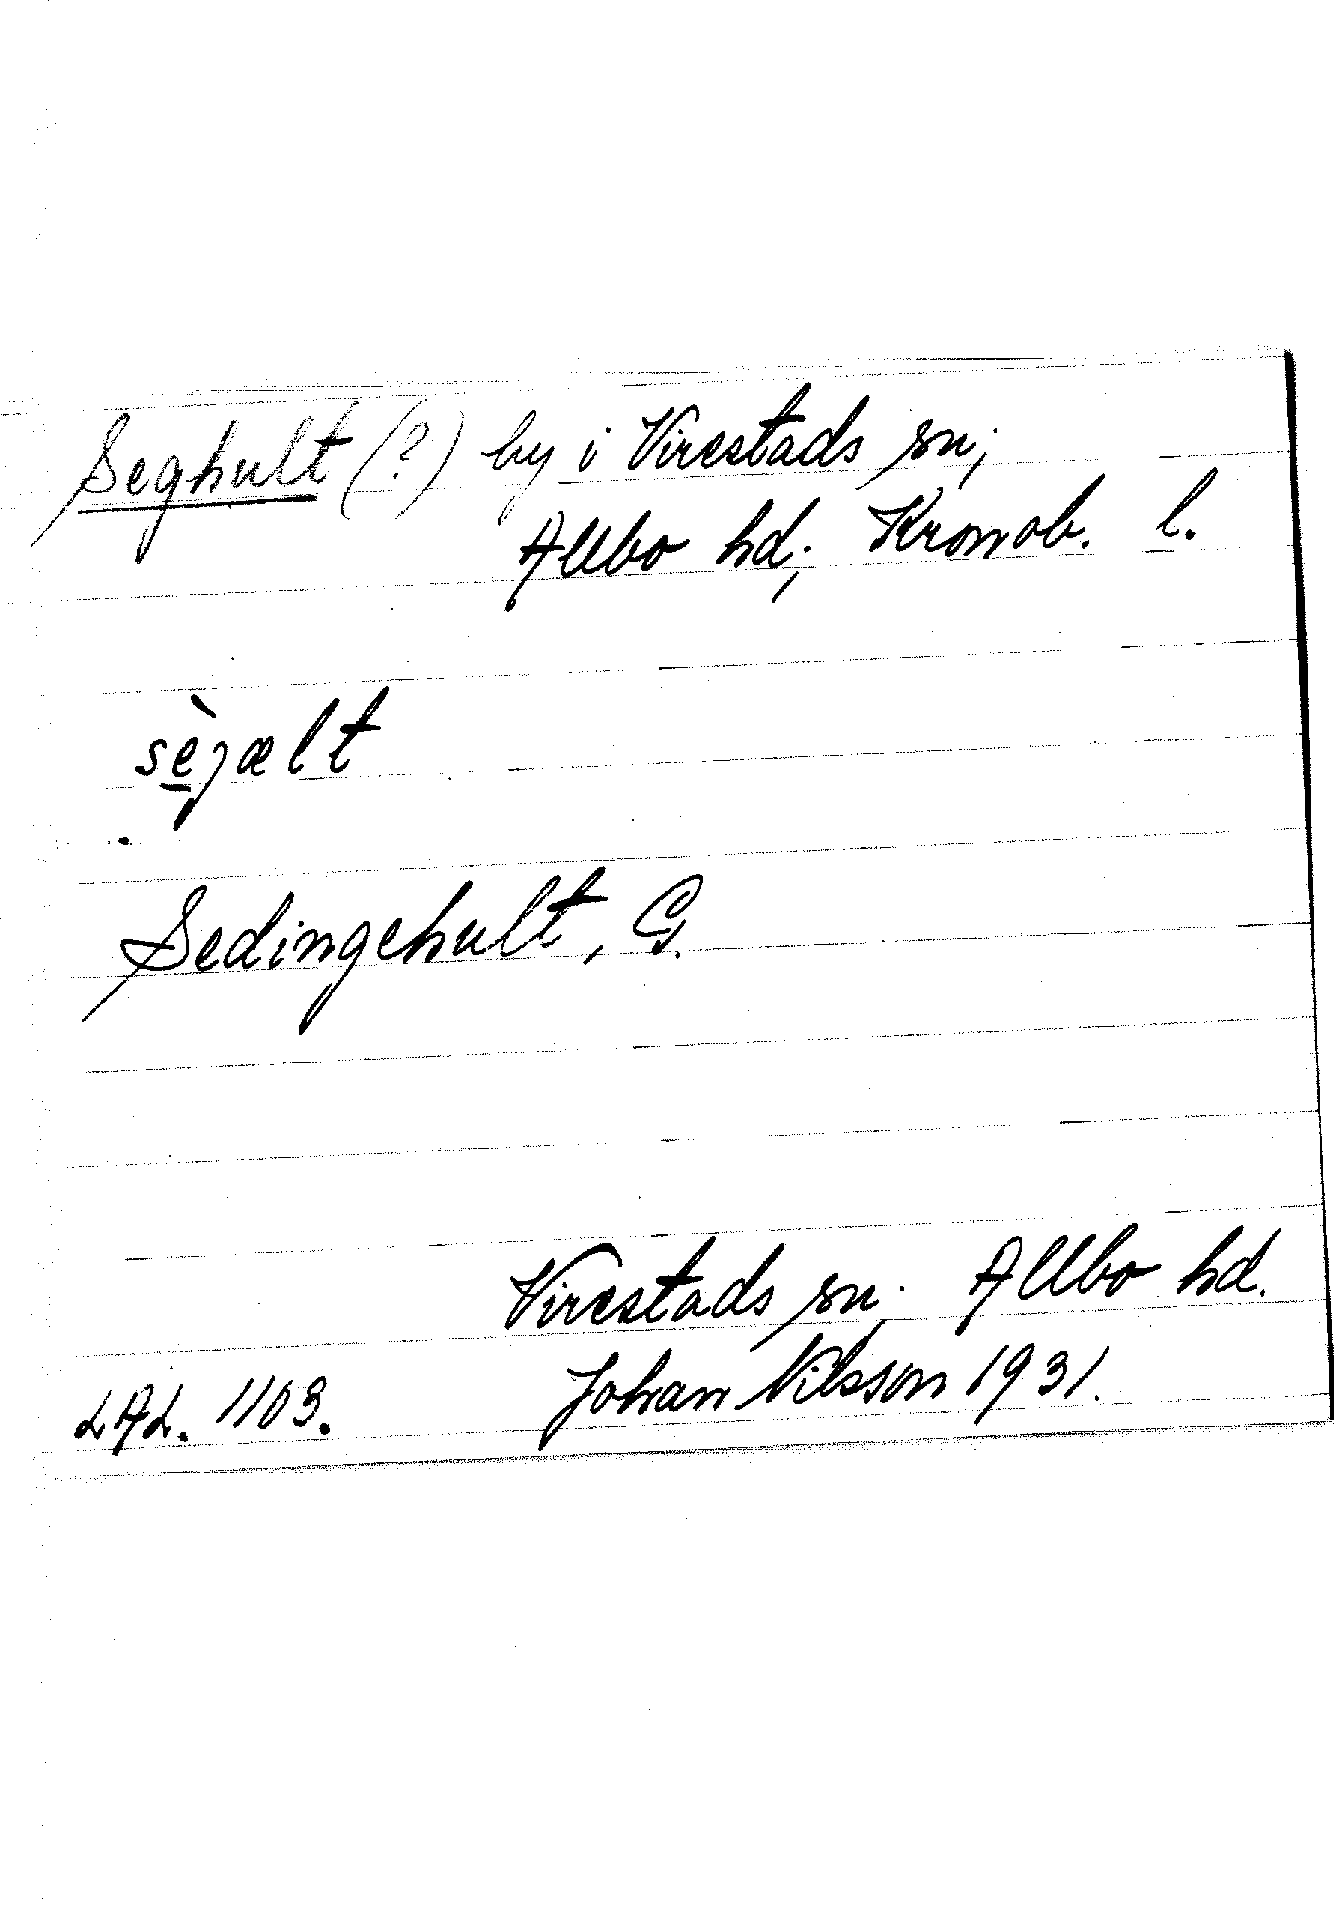 Seghult (?) by i Virestads sn;
Allbo hd; Kronob. l.
sèjælt
Sedingehult, G.
Virestads sn. Allbo hd.
Johan Nilsson 1931.
LAL. 1103.